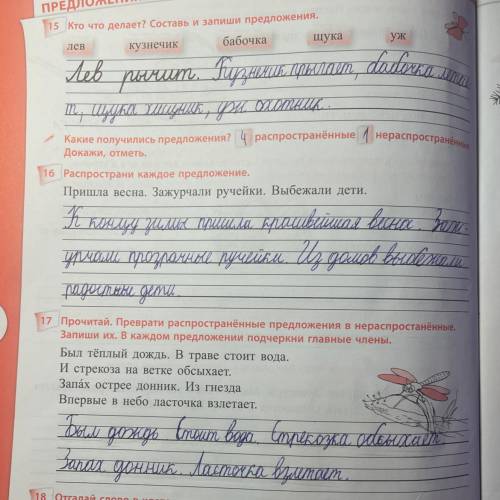 ПРЕДЛОЖЕНИ
15 Кто что делает? Составь и запиши предложения.
лев кузнечик бабочка щука уж
Лев рычит. Кузнечик прыгает, бабочка летае
т, щука хищник, уж охотник.
Какие получились предложения? 4 распространённые 1 нераспространённые
Докажи, отметь.
16 Распространи каждое предложение.
Пришла весна. Зажурчали ручейки. Выбежали дети.
К концу зимы пришла красивейшая весна. Заж-
урчали прозрачные ручейки. Из домов выбежали
радостные дети.
17 Прочитай. Преврати распространённые предложения в нераспостанённые.
Запиши их. В каждом предложении подчеркни главные члены.
Был тёплый дождь. В траве стоит вода.
И стрекоза на ветке обсыхает.
Запа́х острее донник. Из гнезда
Впервые в небо ласточка взлетает.
Был дождь Стоит вода. Стрекозка обсыхает
Запах донник. Ласточка взлетает.
18 Отгадай слово